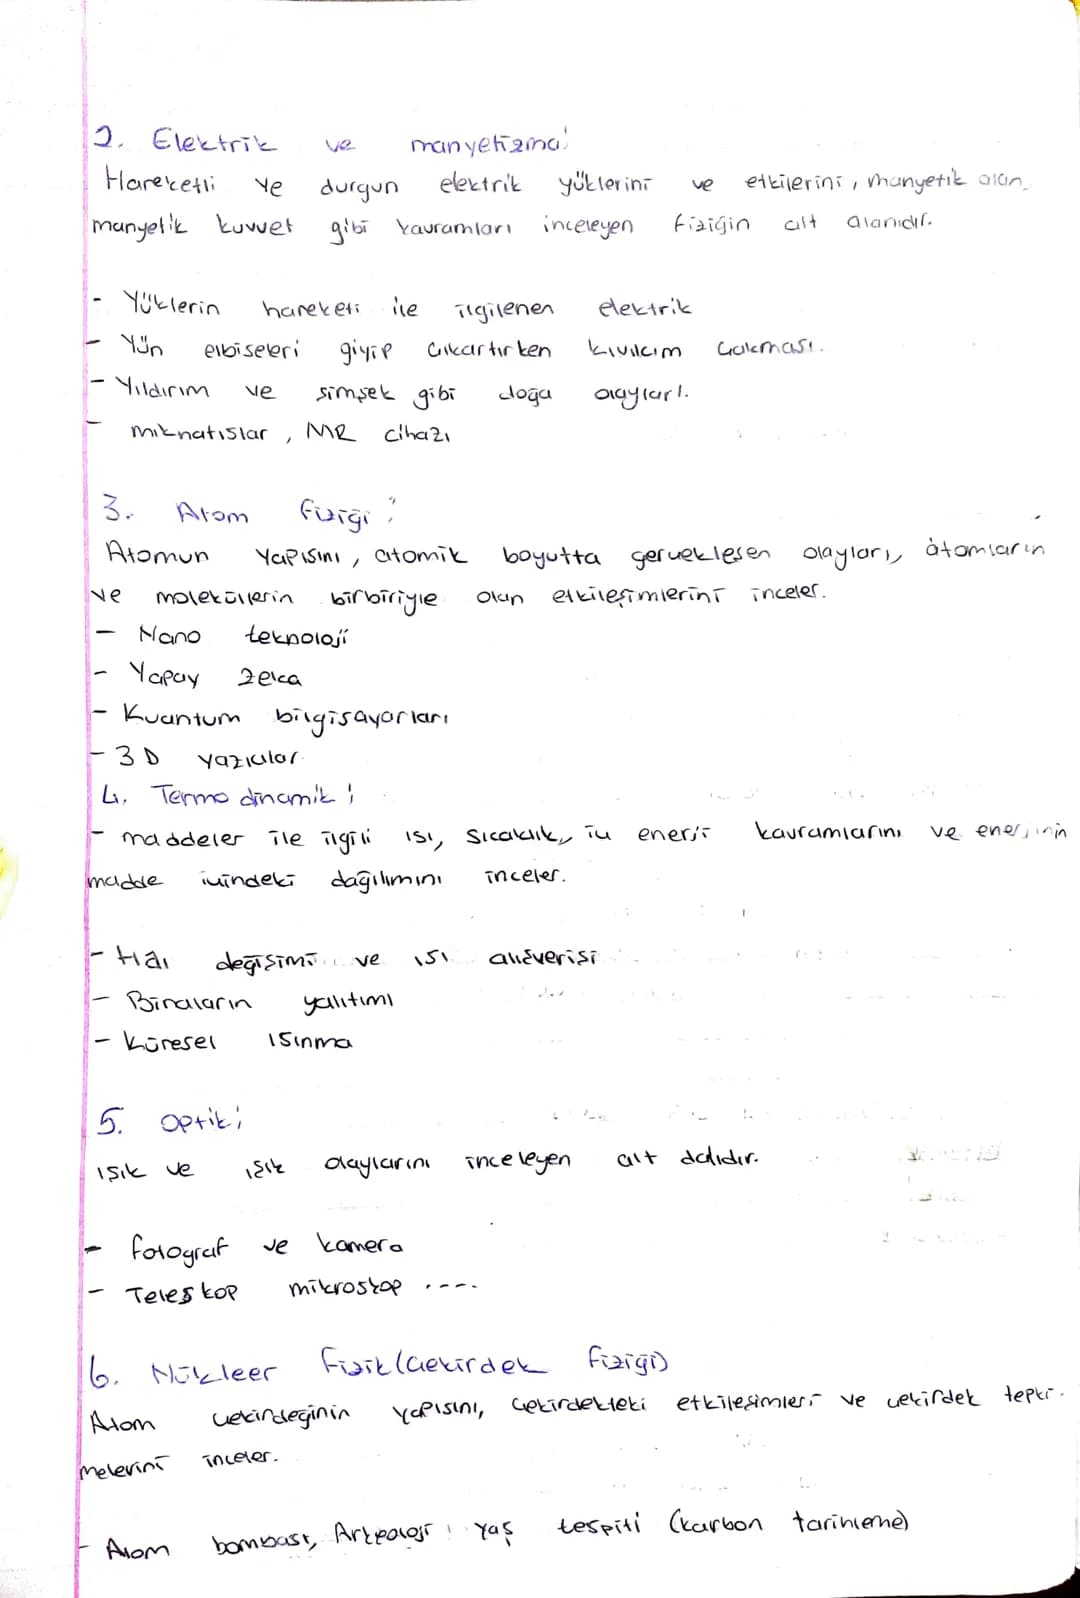 2. Elektrik ve manyetizma:
Hareketli ve durgun elektrik yüklerini ve etkilerini, manyetik alan,
manyetik kuvvet gibi kavramları inceleyen fiziğin alt alanıdır.
- Yüklerin hareketi ile ilgilenen elektrik
- Yün elbiseleri giyip çıkartırken kıvılcım çakması.
- Yıldırım ve şimşek gibi doğa olayları.
- mıknatıslar, MR cihazı
3. Atom fiziği:
Atomun yapısını, atomik boyutta gerçekleşen olayları, atomların
ve moleküllerin birbiriyle olan etkileşimlerini inceler.
- Nano teknoloji
- Yapay zeka
- Kuantum bilgisayarları
- 3D yazıcılar.
4. Termo dinamik;
- maddeler ile ilgili ısı, sıcaklık, iç enerji kavramlarını ve enerjinin
madde içindeki dağılımını inceler.
- Hal değişimi ve ısı alışverişi
- Binaların yalıtımı
- Küresel ısınma
5. Optik;
ışık ve ışık olaylarını inceleyen alt dalıdır.
- fotograf ve kamera
- Teleskop mikroskop ....
6. Nükleer Fizik (Çekirdek fiziği)
Atom çekirdeğinin yapısını, çekirdekteki etkileşimleri ve çekirdek tepki-
melerini inceler.
- Atom bombası, Arkeoloji yaş tespiti (karbon tarihleme)